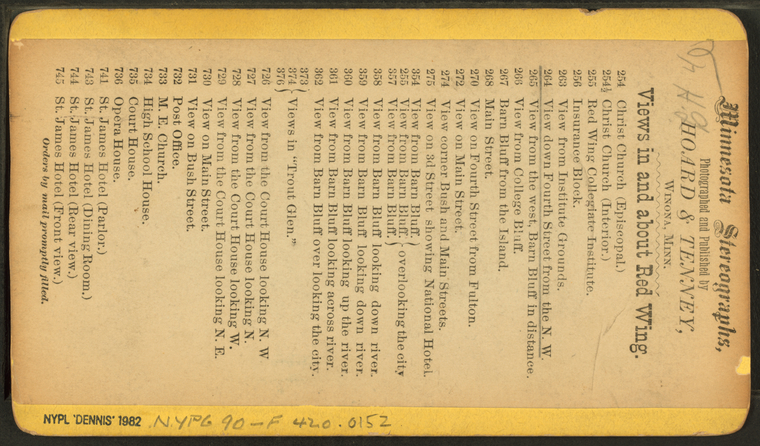 Minnesota Stereographs,
Photographed and Published by
HOARD & TENNEY,
WINONA, MINN.
Views in and about Red Wing.
254 Christ Church (Episcopal.)
254½ Christ Church (Interior.)
255 Red Wing Collegiate Institute.
256 Insurance Block.
263 View from Institute Grounds.
264 View down Fourth Street from the N. W.
265 View from the west, Barn Bluff in distance.
266 View from College Bluff.
267 Barn Bluff from the Island.
268 Main Street.
270 View on Fourth Street from Fulton.
272 View on Main Street.
274 View corner Bush and Main Streets.
275 View on 3d Street showing National Hotel.
354 View from Barn Bluff.)
255 View from Barn Bluff. } overlooking the city
357 View from Barn Bluff.)
358 View from Barn Bluff looking down river.
359 View from Barn Bluff looking down river.
360 View from Barn Bluff looking up the river.
361 View from Barn Bluff looking across river.
362 View from Barn Bluff over looking the city.
373)
374 } Views in "Trout Glen."
376)
726 View from the Court House looking N. W
727 View from the Court House looking N.
728 View from the Court House looking W.
729 View from the Court House looking N. E.
730 View on Main Street.
731 View on Bush Street.
732 Post Office.
733 M. E. Church.
734 High School House.
735 Court House.
736 Opera House.
741 St. James Hotel (Parlor.)
743 St. James Hotel (Dining Room.)
744 St. James Hotel (Rear view.)
745 St. James Hotel (Front view.)
Orders by mail promptly filled.
NYPL 'DENNIS' 1982 NYPG 90-F 420.0152